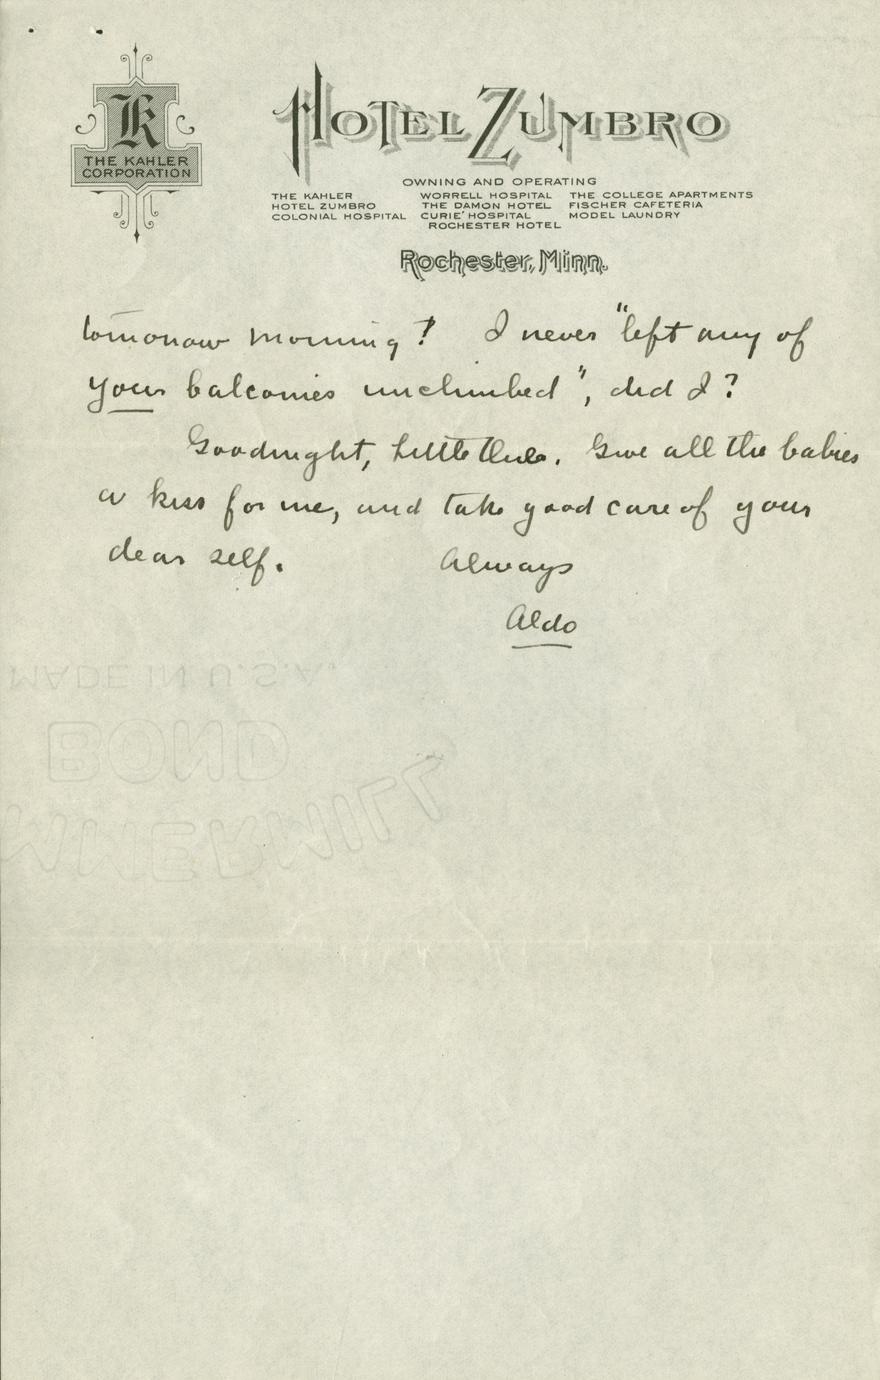 K
THE KAHLER
CORPORATION
HOTEL ZUMBRO
OWNING AND OPERATING
THE KAHLER WORRELL HOSPITAL THE COLLEGE APARTMENTS
HOTEL ZUMBRO THE DAMON HOTEL FISCHER CAFETERIA
COLONIAL HOSPITAL CURIE' HOSPITAL MODEL LAUNDRY
ROCHESTER HOTEL
Rochester, Minn.
tomorrow morning? I never "left any of
your balconies unclimbed", did I?
Goodnight, little . Give all the babies
a kiss for me, and take good care of your
dear self. Always
Aldo
MADE IN U.S.A.
BOND